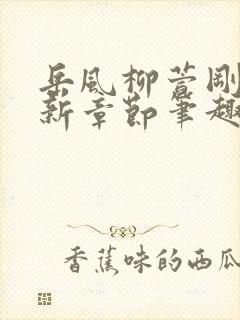 岳风柳萱剛
新章節筆趣
香蕉味的西瓜